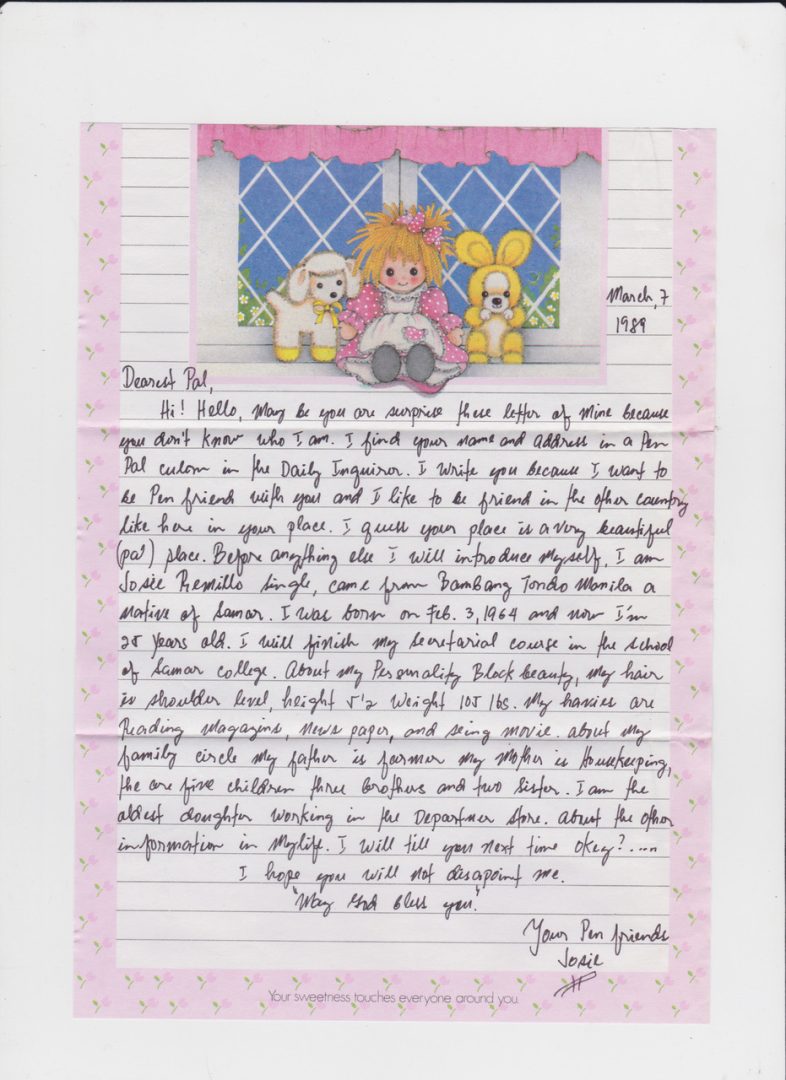 March, 7
1989
Dearest Pal,
Hi! Hello, May be you are surprise these letter of mine because
you don't know who I am. I find your name and address in a Pen
Pal culom in the Daily Inquiror. I write you because I want to
be Pen friend with you and I like to be friend in the other country
like here in your place. I guess your place is a very beautiful
(pa') place. Before anything else I will introduce myself, I am
Josie Remillo single, came from Bambang Tondo Manila a
native of Samar. I was born on Feb. 3, 1964 and now I'm
25 years old. I will finish my secretarial course in the school
of Samar college. About my Personality Black beauty, my hair
is shoulder level, height 5'2 Weight 105 lbs. My havies are
Reading magazins, news paper, and seing movie. about my
family circle my father is farmer my Mother is Housekeeping,
the are five children three brothers and two Sister. I am the
oldest doughter working in the Departmer store. About the other
information in Mylife. I will till you next time okey?....
I hope you will not disapoint me.
"May God bless you."
Your Pen friends
Josie
Your sweetness touches everyone around you.